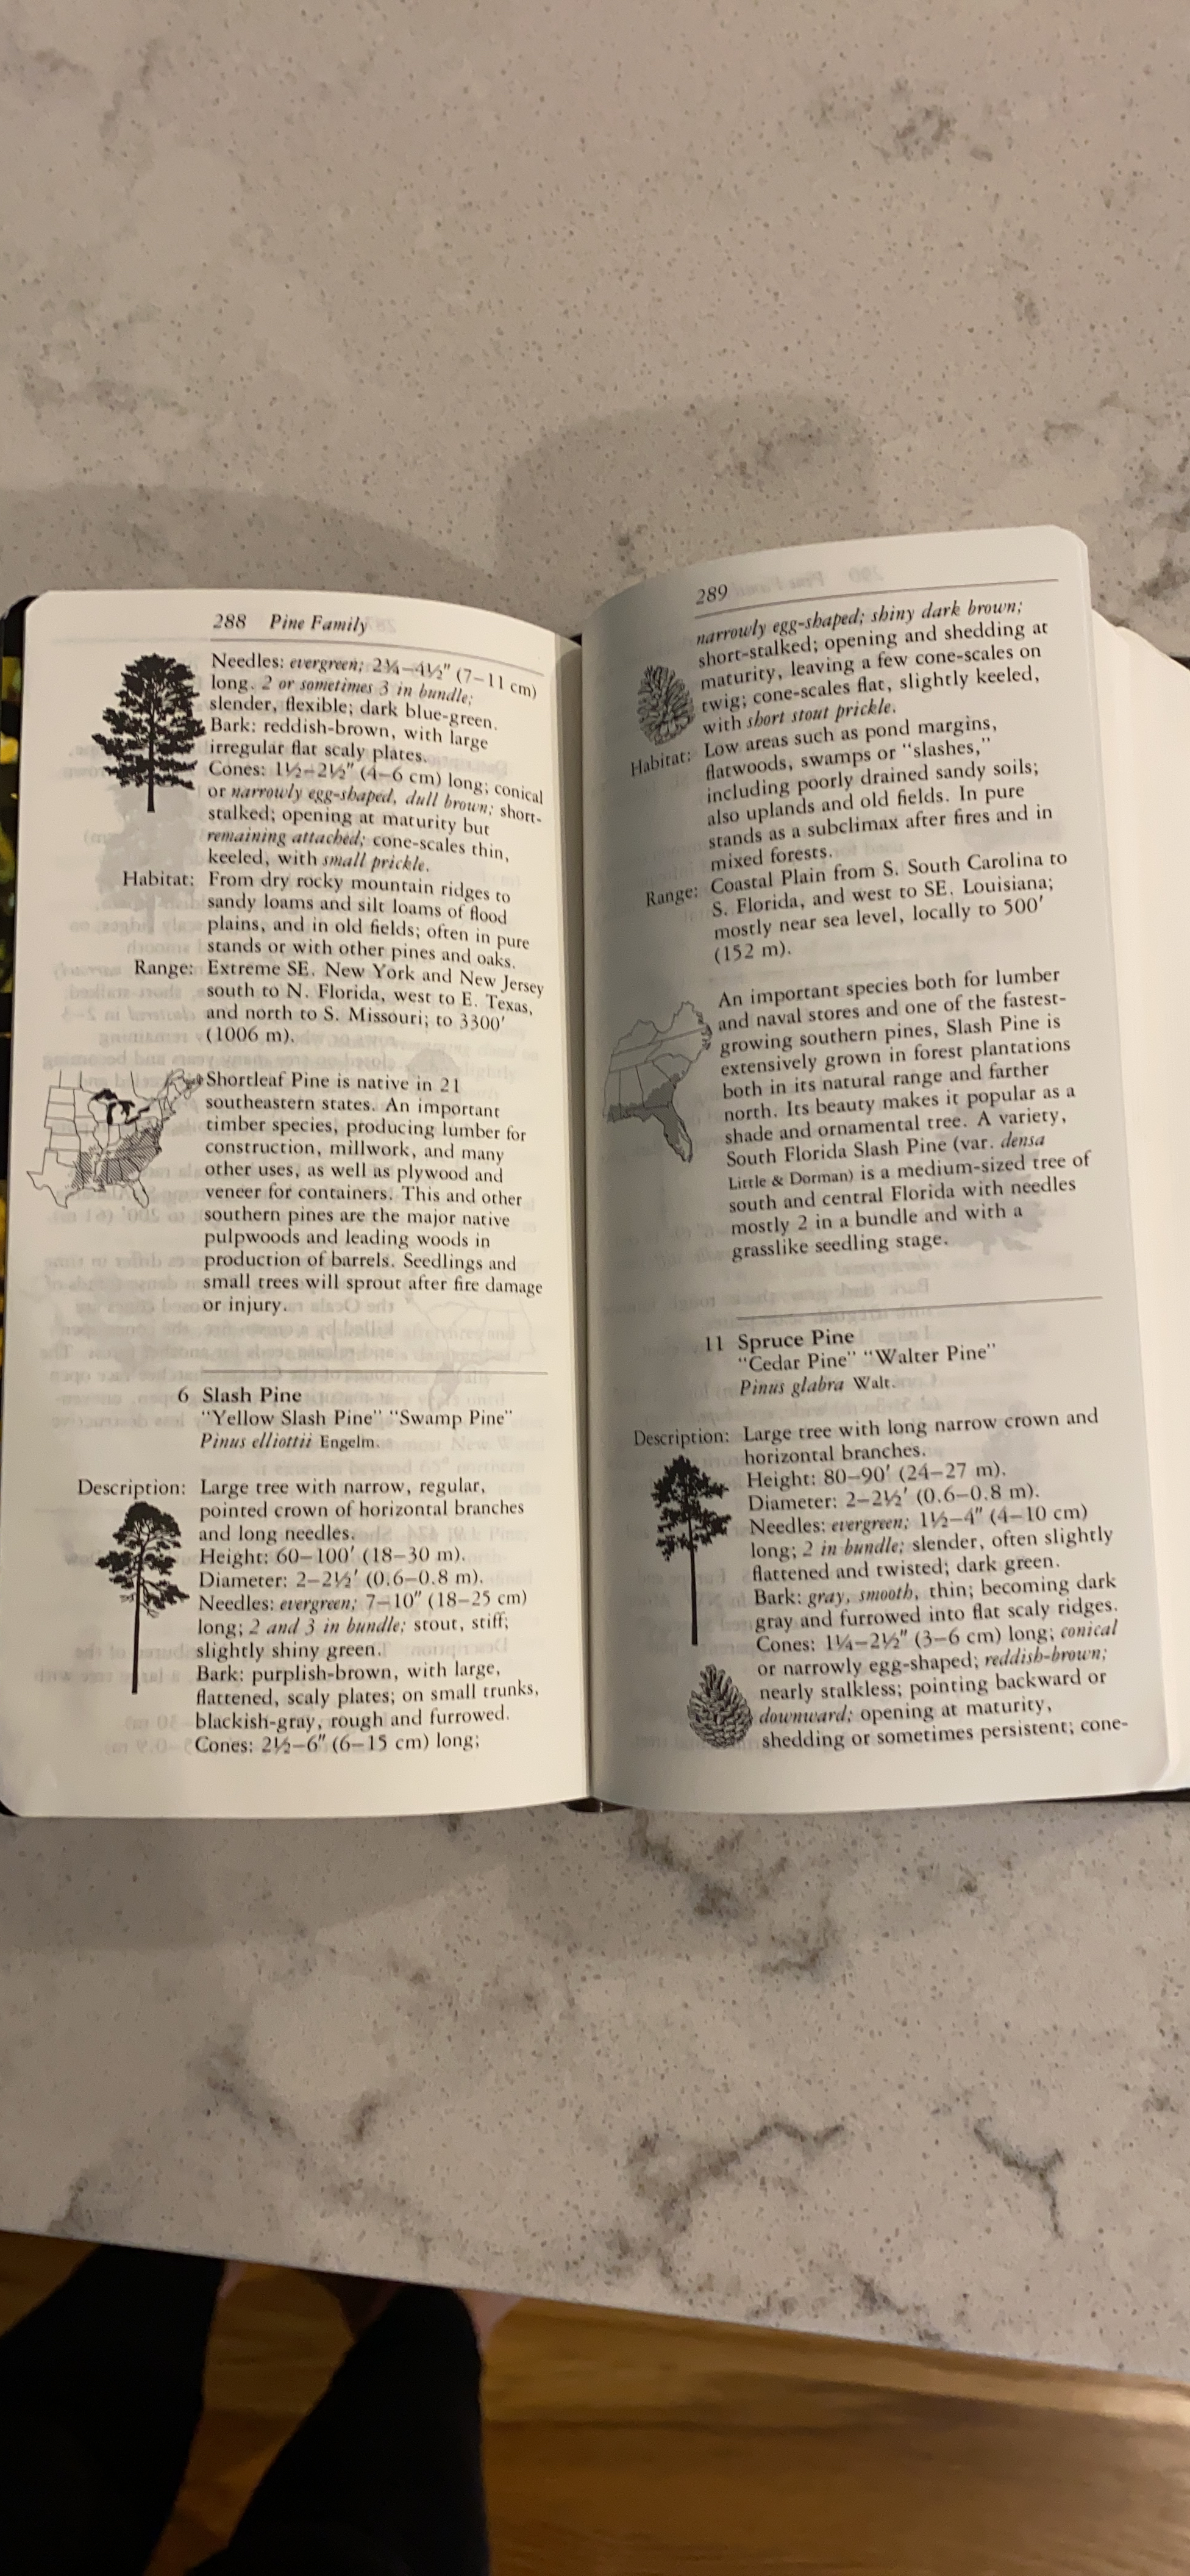 288 Pine Family
Needles: evergreen; 2¾–4½" (7–11 cm)
long. 2 or sometimes 3 in bundle;
slender, flexible; dark blue-green.
Bark: reddish-brown, with large
irregular flat scaly plates.
Cones: 1½–2½" (4–6 cm) long; conical
or narrowly egg-shaped, dull brown; short-
stalked; opening at maturity but
remaining attached; cone-scales thin,
keeled, with small prickle.
Habitat: From dry rocky mountain ridges to
sandy loams and silt loams of flood
plains, and in old fields; often in pure
stands or with other pines and oaks.
Range: Extreme SE. New York and New Jersey
south to N. Florida, west to E. Texas,
and north to S. Missouri; to 3300'
(1006 m).
Shortleaf Pine is native in 21
southeastern states. An important
timber species, producing lumber for
construction, millwork, and many
other uses, as well as plywood and
veneer for containers. This and other
southern pines are the major native
pulpwoods and leading woods in
production of barrels. Seedlings and
small trees will sprout after fire damage
or injury.
6 Slash Pine
"Yellow Slash Pine" "Swamp Pine"
Pinus elliottii Engelm.
Description: Large tree with narrow, regular,
pointed crown of horizontal branches
and long needles.
Height: 60–100' (18–30 m).
Diameter: 2–2½' (0.6–0.8 m).
Needles: evergreen; 7–10" (18–25 cm)
long; 2 and 3 in bundle; stout, stiff;
slightly shiny green.
Bark: purplish-brown, with large,
flattened, scaly plates; on small trunks,
blackish-gray, rough and furrowed.
Cones: 2½–6" (6–15 cm) long;
289
narrowly egg-shaped; shiny dark brown;
short-stalked; opening and shedding at
maturity, leaving a few cone-scales on
twig; cone-scales flat, slightly keeled,
with short stout prickle.
Habitat: Low areas such as pond margins,
flatwoods, swamps or "slashes,"
including poorly drained sandy soils;
also uplands and old fields. In pure
stands as a subclimax after fires and in
mixed forests.
Range: Coastal Plain from S. South Carolina to
S. Florida, and west to SE. Louisiana;
mostly near sea level, locally to 500'
(152 m).
An important species both for lumber
and naval stores and one of the fastest-
growing southern pines, Slash Pine is
extensively grown in forest plantations
both in its natural range and farther
north. Its beauty makes it popular as a
shade and ornamental tree. A variety,
South Florida Slash Pine (var. densa
Little & Dorman) is a medium-sized tree of
south and central Florida with needles
mostly 2 in a bundle and with a
grasslike seedling stage.
11 Spruce Pine
"Cedar Pine" "Walter Pine"
Pinus glabra Walt.
Description: Large tree with long narrow crown and
horizontal branches.
Height: 80–90' (24–27 m).
Diameter: 2–2½' (0.6–0.8 m).
Needles: evergreen; 1½–4" (4–10 cm)
long; 2 in bundle; slender, often slightly
flattened and twisted; dark green.
Bark: gray, smooth, thin; becoming dark
gray and furrowed into flat scaly ridges.
Cones: 1¼–2½" (3–6 cm) long; conical
or narrowly egg-shaped; reddish-brown;
nearly stalkless; pointing backward or
downward; opening at maturity,
shedding or sometimes persistent; cone-